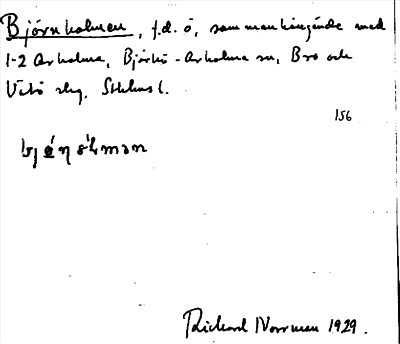 Björnholmen, f.d. ö, sammanhängande med
1-2 Arholma, Björkö-Arholma sn, Bro och
Vätö skg, Sthlms l.
156
Richard Norrman 1929.